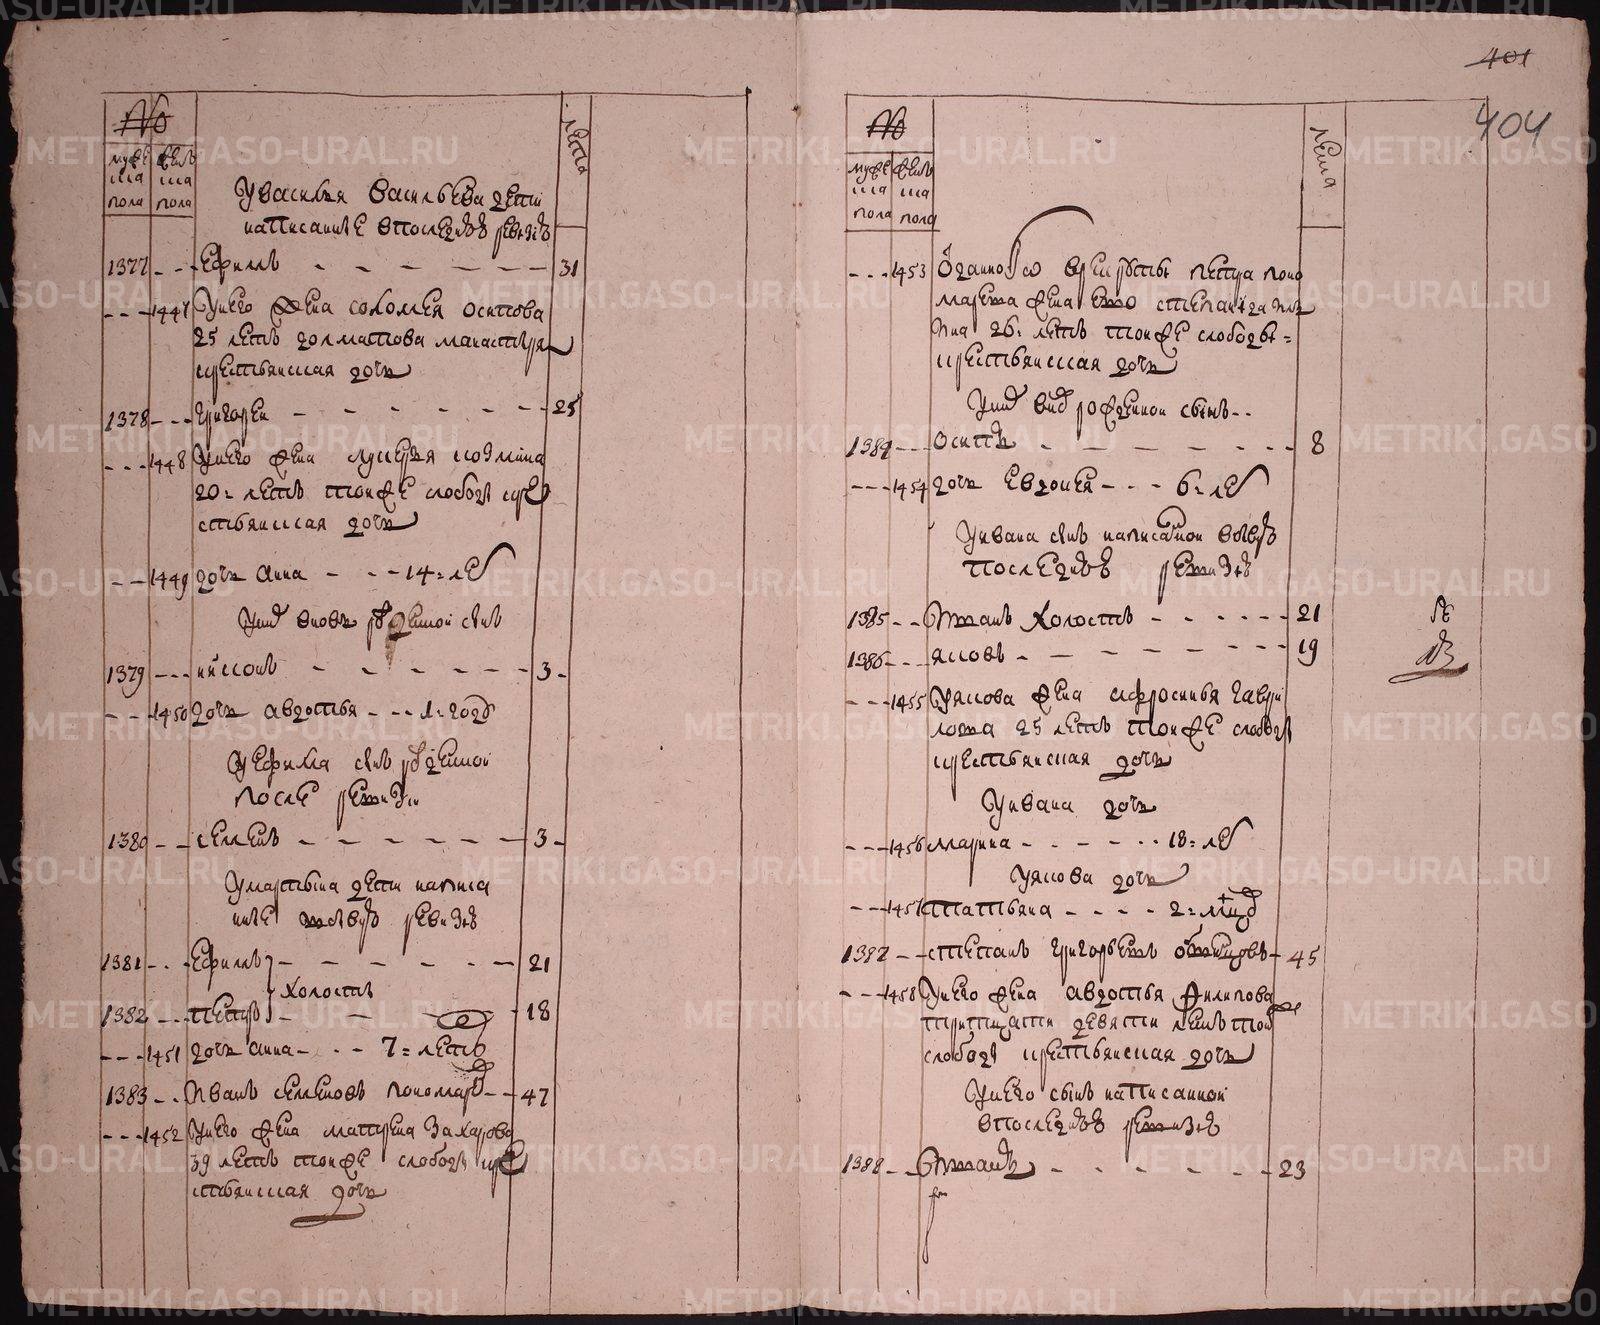 №
муже ска пола
женс ка пола
лета
У василья васильева дети
написание впоследнеї ревизїи
1377 Ефимъ 31
1447 У него жена соломея осипова
25 летъ долматова манастыря
крестьянская дочь
1378 григореи 25
1448 У него жена лукерья козмина
20: летъ тои же слободы кре
стьянская дочь
1449 дочь анна 14: ле
У них вновь рожденнои сынъ
1379 никонъ 3
1450 дочь авдотья 1: годъ
У ефима сынъ рожденнои
после ревизїи
1380 семенъ 3
У мартына дети написа
ние в тои ревизїи
1381 Ефимъ 21
холосты
1382 петръ 18
1451 дочь анна 7: летъ
1383 Иванъ семеновъ пономарев 47
1452 У него жена матрена захарова
39 летъ тои же слободы кре
стьянская дочь
401
404
№
муже ска пола
женс ка пола
лета
1453 Оного рекрута петра поно
марева жена степанида
26: летъ тои же слободы
крестьянская дочь
У них рожденнои сынъ
1384 осипъ 8
1454 дочь евдокея 6: ле
У ивана сынъ написаннои
последнеї ревизїи
1385 Иванъ холостъ 21
1386 яковъ 19
1455 У якова жена афросинья гаври
лова 25 летъ тои же слободы
крестьянская дочь
У ивана дочь
1456 марина 18: ле
У якова дочь
1457 татьяна 2: мцъ
1387 степанъ григорьевъ 45
1458 У него жена авдотья филипова
тритцати девяти летъ тои
слободы крестьянская дочь
У него сынъ написаннои
впоследнеї ревизїи
1388 Иванъ 23
METRIKI.GASO-URAL.RU